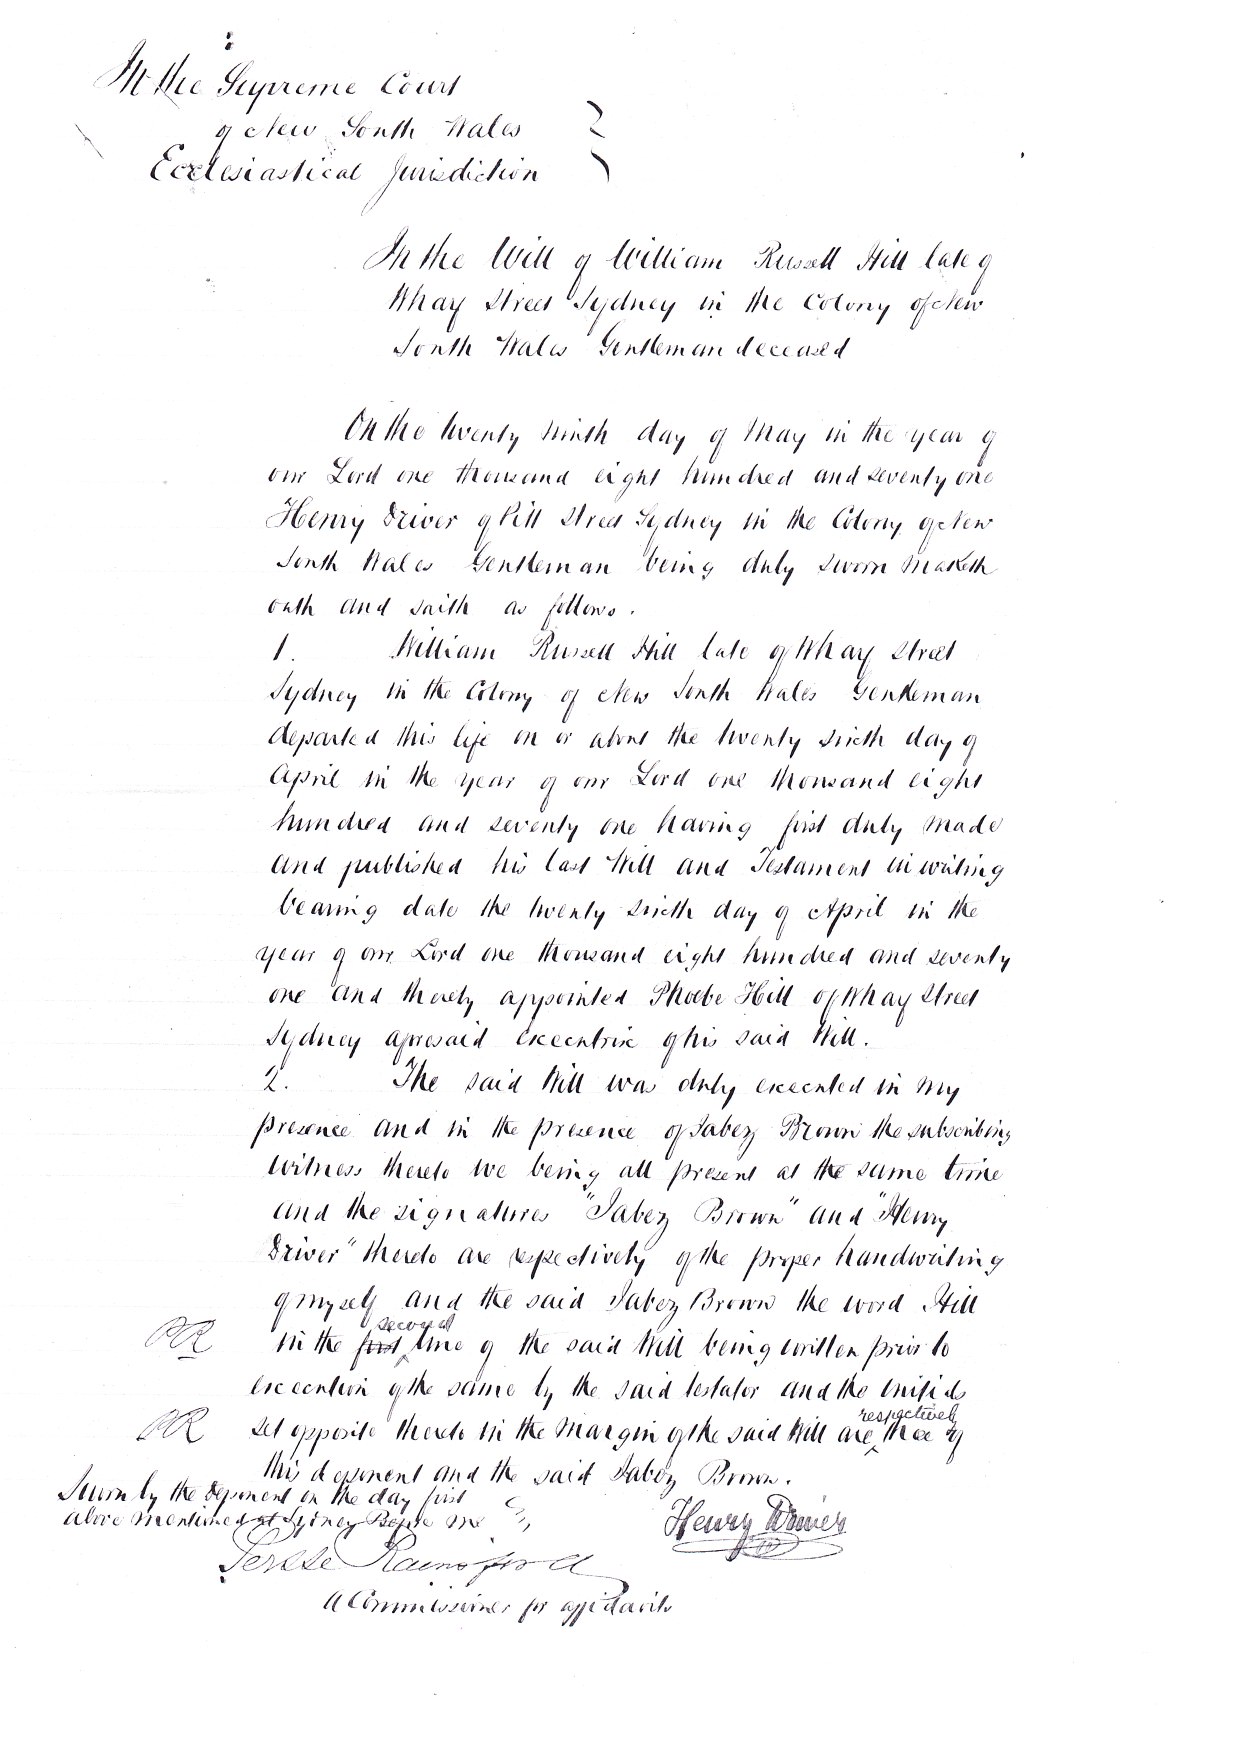 In the Supreme Court
of New South Wales
Ecclesiastical Jurisdiction
In the Will of William Russell Hill late of
Whay Street Sydney in the Colony of New
South Wales Gentleman deceased
On the twenty ninth day of May in the year of
our Lord one thousand eight hundred and seventy one
Henry Driver of Pitt Street Sydney in the Colony of New
South Wales Gentleman being duly sworn maketh
oath and saith as follows.
1. William Russell Hill late of Whay Street
Sydney in the Colony of New South Wales Gentleman
departed this life on or about the twenty sixth day of
April in the year of our Lord one thousand eight
hundred and seventy one having first duly made
and published his last Will and Testament in writing
bearing date the twenty sixth day of April in the
year of our Lord one thousand eight hundred and seventy
one and thereby appointed Phoebe Hill of Whay Street
Sydney aforesaid executrix of his said Will.
2. The said Will was duly executed in my
presence and in the presence of Jabez Brown the subscribing
witness thereto we being all present at the same time
and the signatures "Jabez Brown" and "Henry
Driver" thereto are respectively of the proper handwriting
of myself and the said Jabez Brown the word Hill
PR in the first second line of the said Will being written prior to
execution of the same by the said testator and the initials
PR set opposite thereto in the Margin of the said Will are respectively those of
this deponent and the said Jabez Brown.
Sworn by the Deponent on the day first
above mentioned at Sydney Before me
Henry Driver
Persse Rainsford
A Commissioner for affidavits